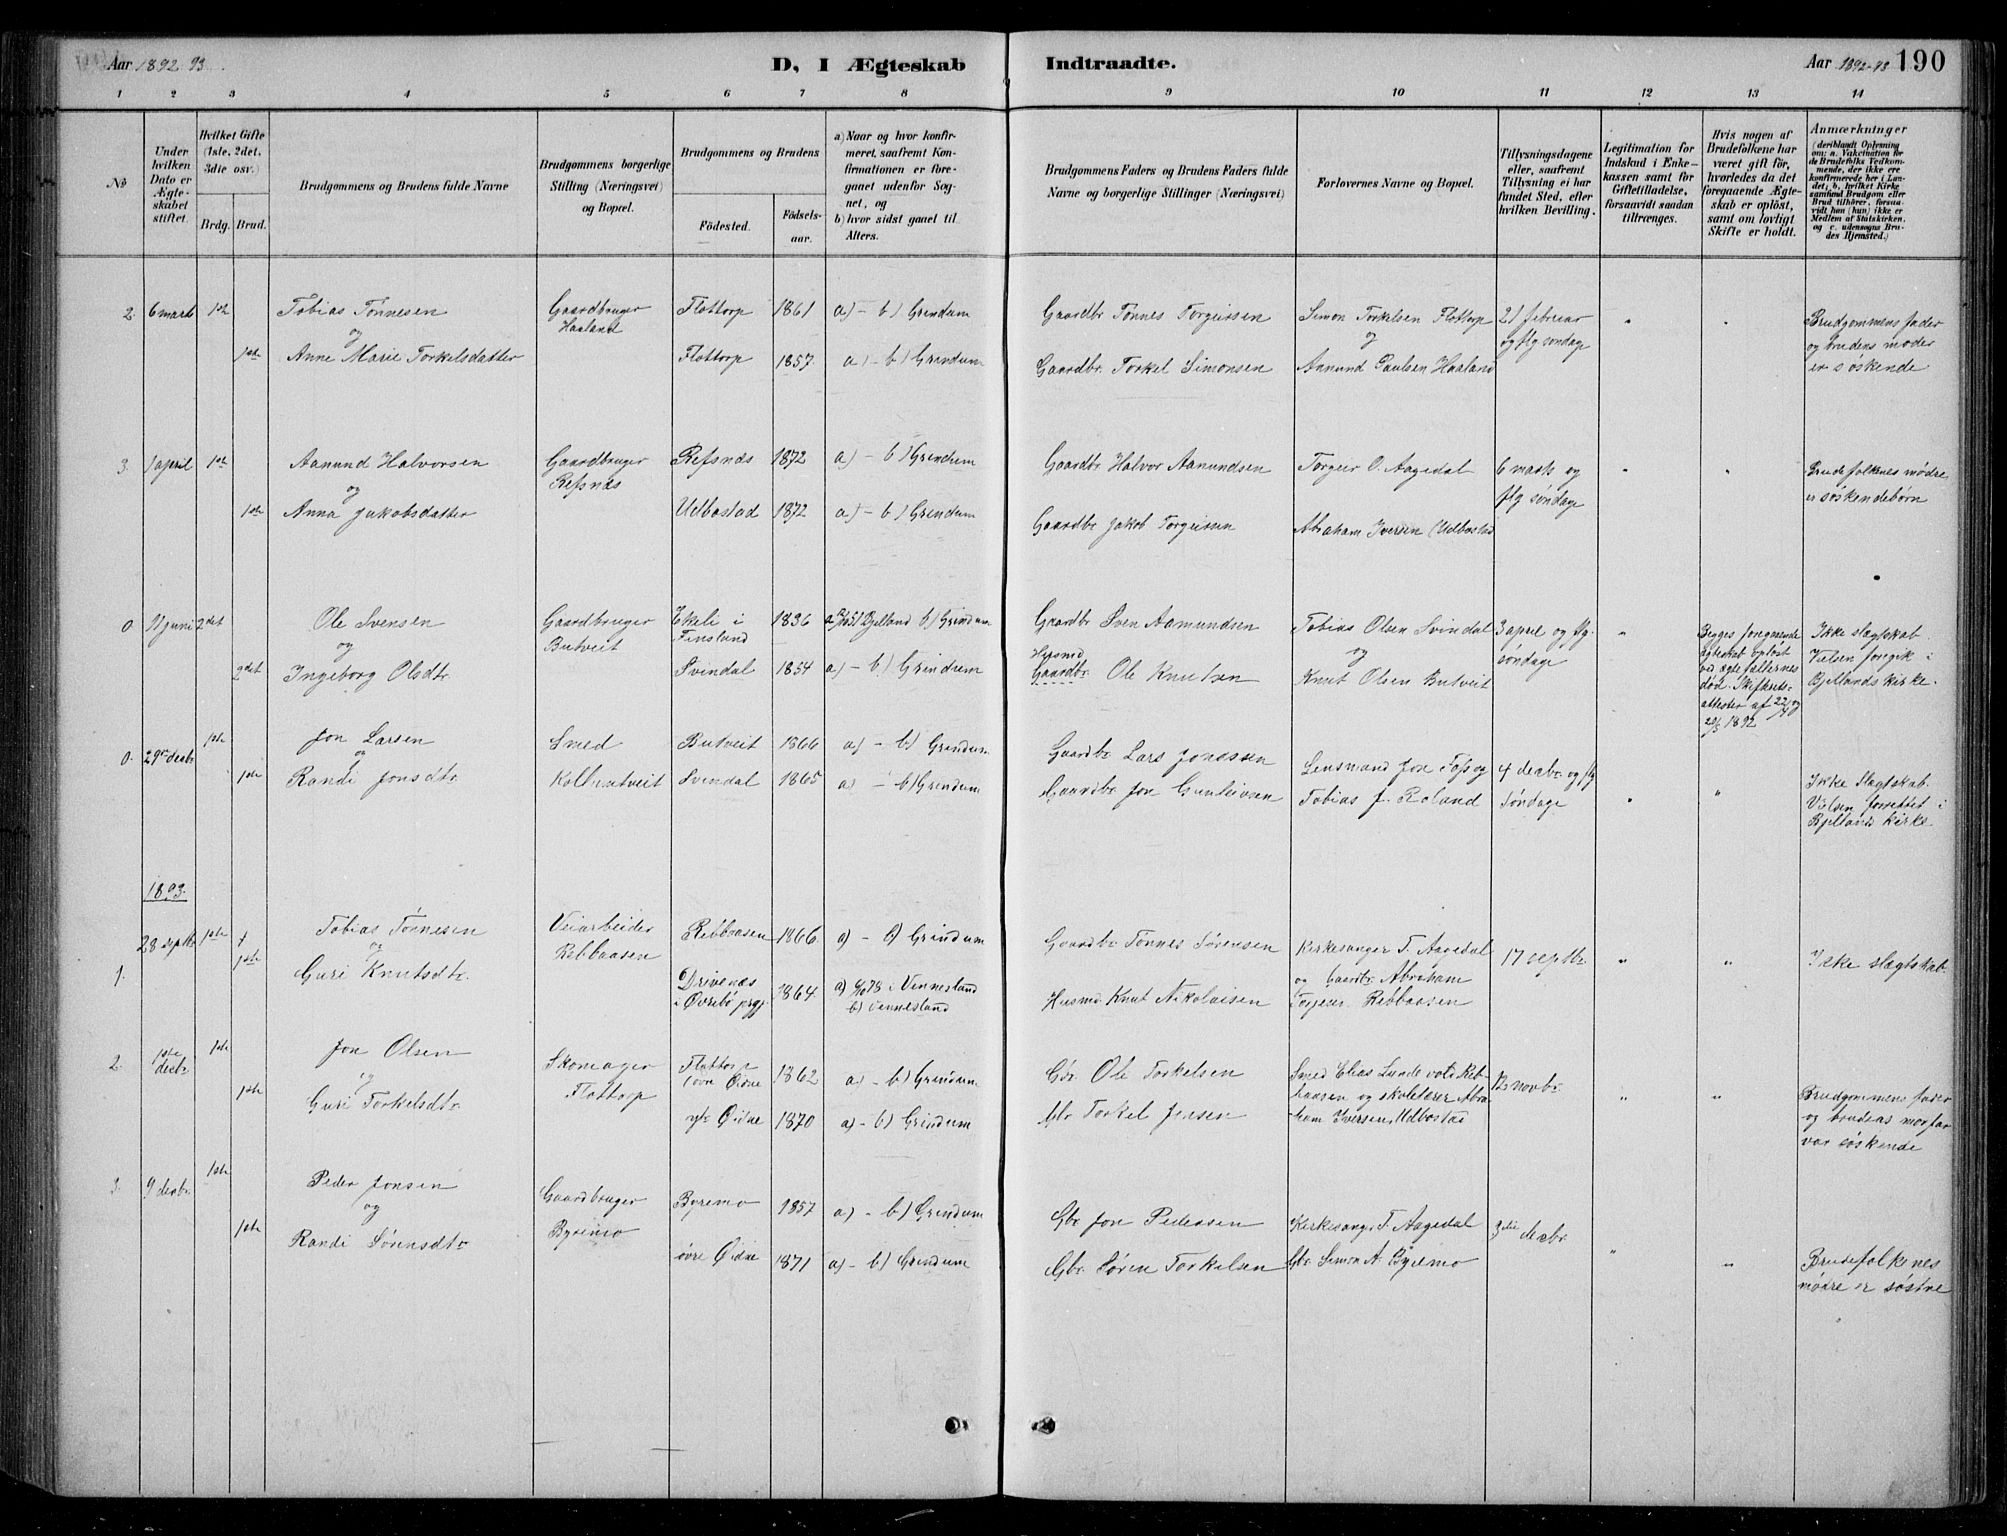 Aar 1892 93.
D, I Ægteskab
Indtraadte.
Aar 1892-93
190
1 2 3 4 5 6 7 8
9 10 11 12 13 14
No
Under hvilken Dato er Ægteskabet stiftet.
Hvilket Gifte (1ste, 2det, 3die osv.)
Brdg. Brud.
Brudgommens og Brudens fulde Navne
Brudgommens borgerlige Stilling (Næringsvei) og Bopæl.
Brudgommens og Brudens
Fødested.
Fødselsaar.
a) Naar og hvor konfirmeret, saafremt Konfirmationen er foregaaet udenfor Sognet, og
b) hvor sidst gaaet til Alters.
Brudgommens Faders og Brudens Faders fulde Navne og borgerlige Stillinger (Næringsvei)
Forlovernes Navne og Bopæl.
Tillysningsdagene eller, saafremt Tillysning ei har fundet Sted, efter hvilken Bevilling.
Legitimation for Indskud i Enkekassen samt for Giftetilladelse, forsaavidt saadan tiltrænges.
Hvis nogen af Brudefolkene har været gift før, hvorledes da det foregaaende Ægteskab er opløst, samt om lovligt Skifte er holdt.
Anmærkninger (deriblandt Oplysning om: a. Vakcination for de Brudefolks Vedkommende, der ikke ere konfirmerede her i Landet; b. hvilket Kirkesamfund Brudgom eller Brud tilhører, forsaavidt han (hun) ikke er Medlem af Statskirken, og c. udensogns Brudes Hjemsted.)
2. 6 marts 1ste Tobias Tønnesen Gaardbruger Haaland Flottorp 1861 a) - b) Grendum Gaardbr Tønnes Torgeirsen Simon Torkelsen Flottorp 21 februar " " Brudgommens fader
og og og flg søndage og brudens moder
1ste Anne Marie Torkelsdatter Flottorp 1857. a) - b) Grendum Gaardbr. Torkel Simonsen Aanund Paulsen Haaland er søskende
3. 1 april 1ste Aanund Halvorsen Gaardbruger Refsnæs Refsnæs 1872 a) - b) Grendum Gaardbr. Halvor Aanundsen Torgeir O. Aagedal 6 marts og " " Brudefolkenes mødre
og flg søndage er søskendebørn
1ste Anna Jakobsdatter Udbostad 1872 a) - b) Grendum Gaardbr Jakob Torgeirsen Abraham Iversen Udbostad
0. juni 2det Ole Svensen Gaardbruger Butveit Ekeli i Finsland 1836 Bjelland b) Grendum Gaardbr Sven Aamundsen Tobias Olsen Svindal 3 april og flg. søndage " Begges foregaaende ægteskab opløst ved ægtefællernes død. Skifterets attester af 22/4 og 20/5 1892 Ikke slegtskab. Vielsen foregik i Bjellands kirke.
og Husmd og
2det Ingeborg Olsdtr. Svindal 1854 a) - b) Grendum Gaardbr. Ole Knutsen Knut Olsen Butveit
0. 29de decbr 1ste Jon Larsen Smed Butveit 1866 a) - b) Grendum Gaardbr Lars Jonassen Lensmand Jon Foss og 4 decbr og flg søndage " " Ikke Slegtskab. Vielsen forrettet i Bjellands kirke.
og
1ste Randi Jonsdtr Kolbrutveit Svindal 1865 a) - b) Grendum Gaardbr Jon Gunleivsen Tobias J. Roland
1893.
1. 28 septb 1ste Tobias Tønnesen Veiarbeider Rebbaasen Rebbaasen 1866. a) - b) Grindum Gaardbr Tønnes Sørensen Kirkesanger T. Aagedal 17 septbr " " Ikke slegtskab.
og og Gaardbr. Abraham
1ste Guri Knutsdtr. Drivenæs i Øvrebø prgj 1864. a) 78 i Vennesland b) Vennesland Husmd Knut Nikolaisen Rebbaasen
2. 1ste decbr 1ste Jon Olsen Skomager Flottorp Flottorp 1862 a) - b) Grendum Gbr. Ole Torkelsen Smed Elias Lunde Rebbaasen og skolelærer Abraham Iversen, Udbostad 12 novbr. " " Brudgommens fader og brudens morfar var søskende
og
1ste Guri Torkelsdtr. Øidne 1870 a) - b) Grindum Gbr Torkel Jensen
3. 9 decbr. 1ste Peder Jonsen Gaardbruger Byremo Byremo 1857 a) - b) Grendum Gbr Jon Pedersen Kirkesanger T. Aagedal 3die decbr. " " Brudefolkenes mødre er søstre
og
1ste Randi Sørensdtr øvre Øidne 1871 a) - b) Grendum Gbr. Søren Torkelsen Gbr. Simon A. Byremo